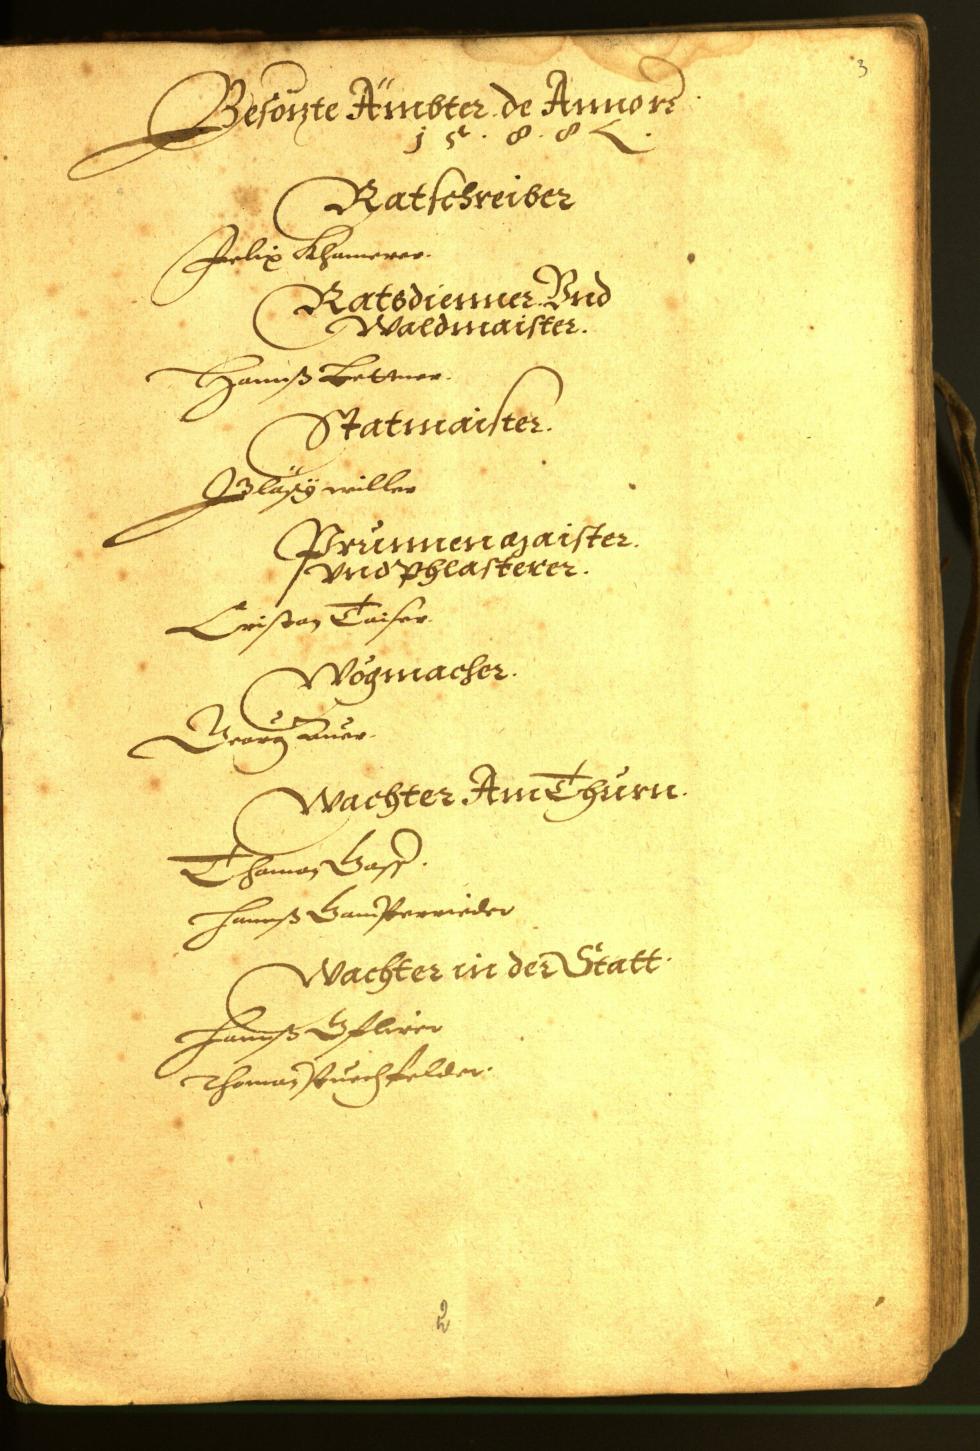 3
Besötzte Ämbter de Anno etc.
1 5 . 8 . 8 .
Ratschreiber
Felix Khamerer.
Ratsdienner Vnd
Waldmaister.
Hannß
Statmaister.
Blasÿ willer
Prunnenmaister
vnd Phlasterer.
Cristan Taiser
Wögmacher.
Georg Auer.
Wachter Am Thurn.
Thomas Gasß.
Hannß
Wachter in der Statt.
Hannß Gflirer
Thomas Puechfelder.
2